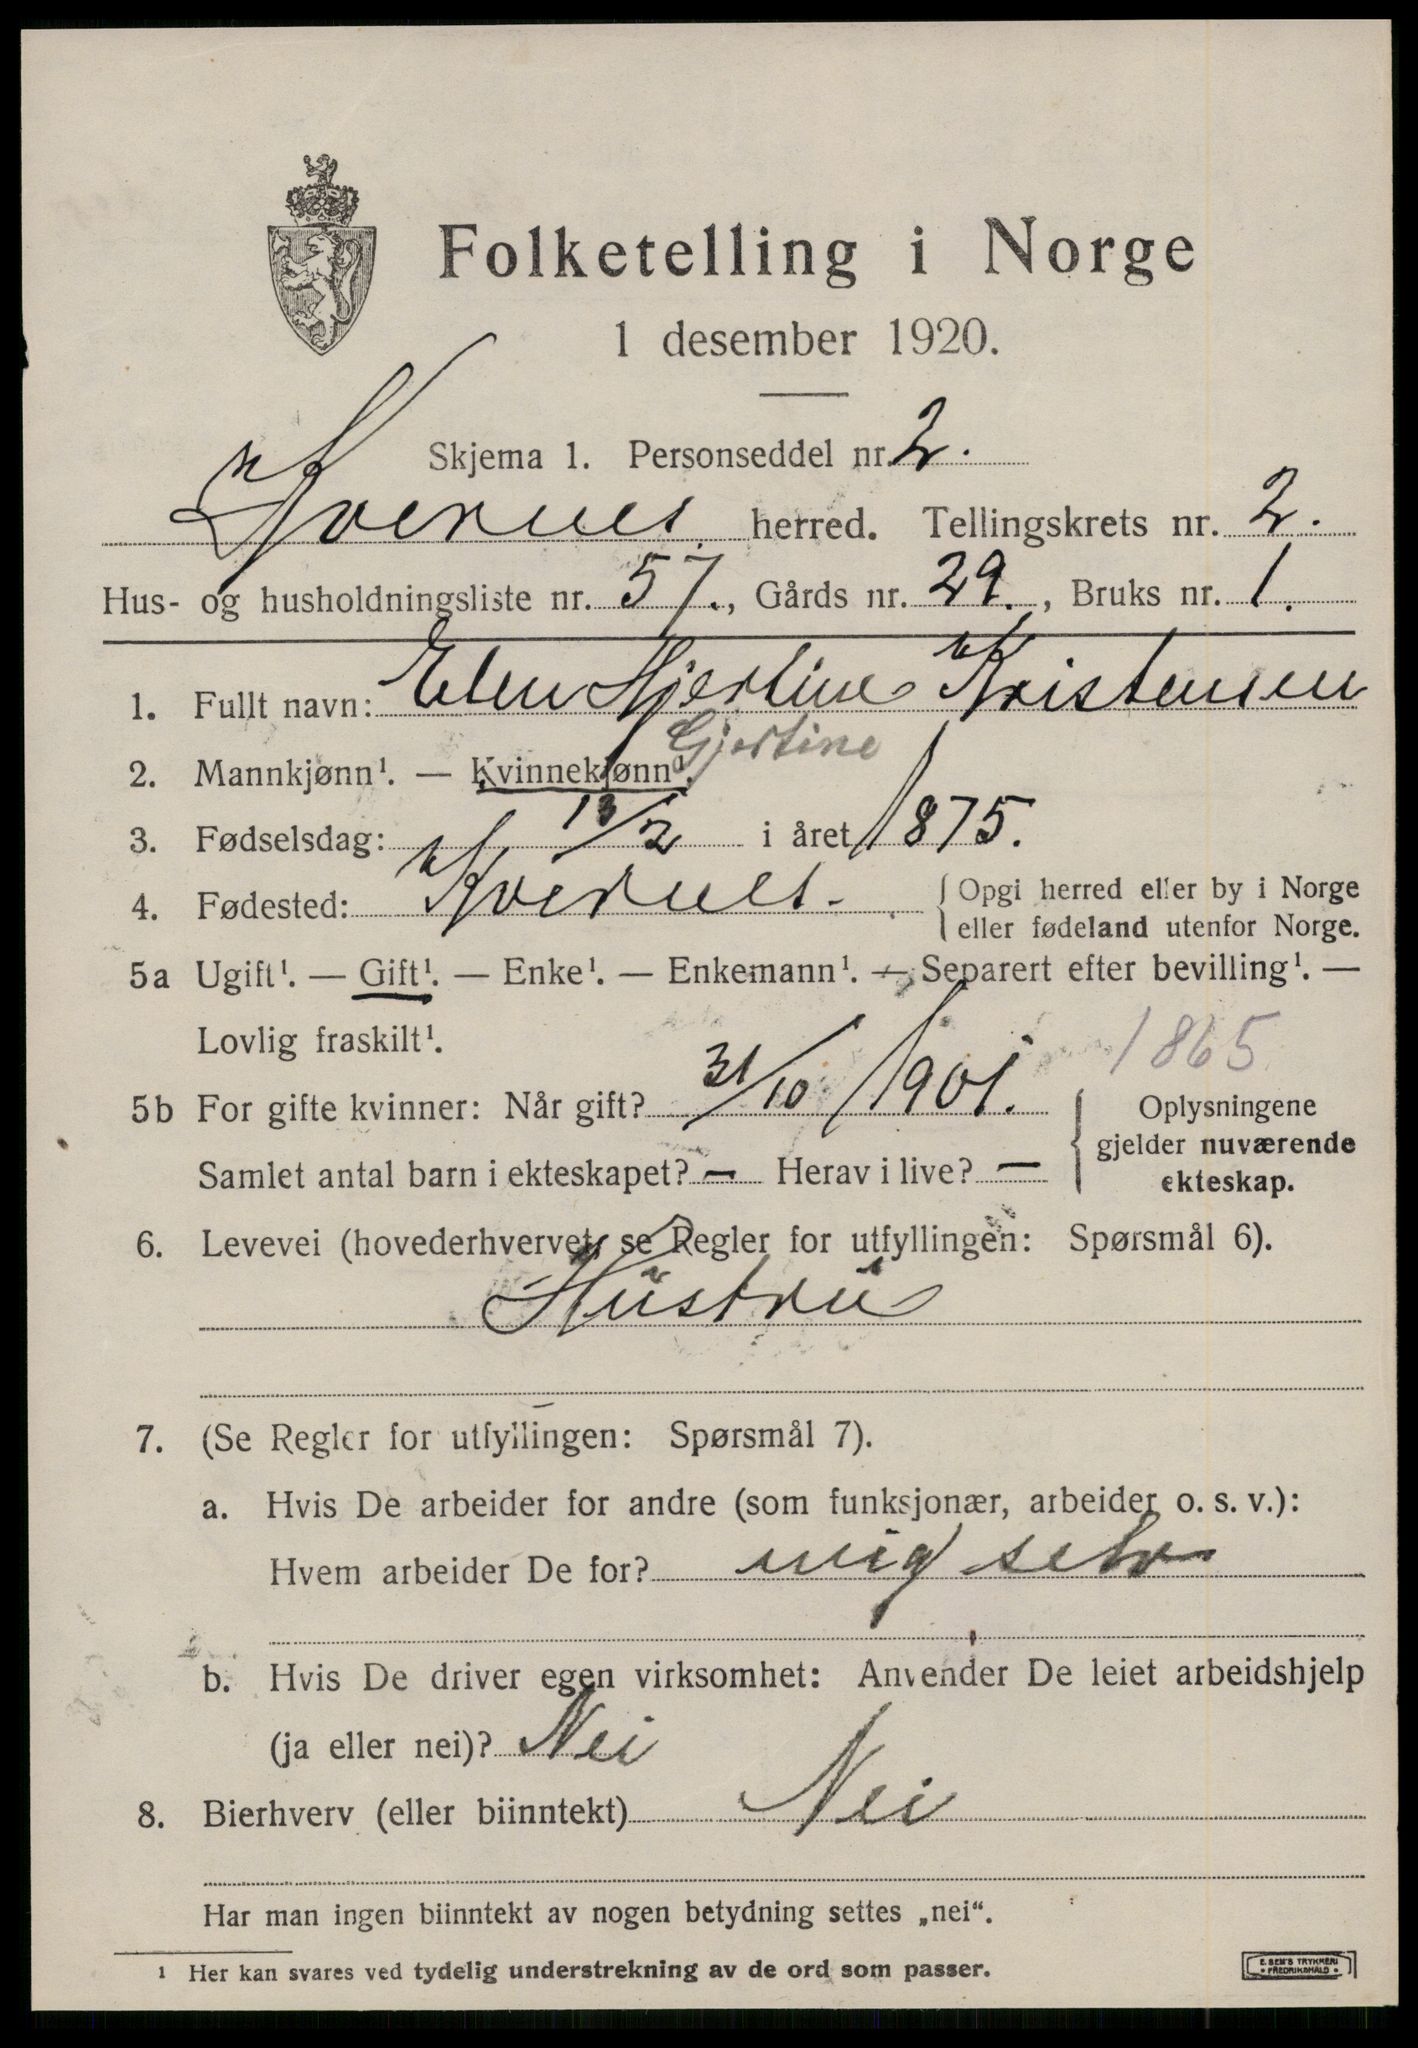 Folketelling i Norge
1 desember 1920.
Skjema 1. Personseddel nr. 2.
Kvernes herred. Tellingskrets nr. 2.
Hus- og husholdningsliste nr. 57., Gårds nr. 29., Bruks nr. 1.
1. Fullt navn: Elen Hjertine Kristensen
Gjertine
2. Mannkjønn¹. — Kvinnekjønn¹.
3. Fødselsdag: 13/2 i året 1875.
4. Fødested: Kvernes. { Opgi herred eller by i Norge
eller fødeland utenfor Norge.
5a Ugift¹. — Gift¹. — Enke¹. — Enkemann¹. — Separert efter bevilling¹. —
Lovlig fraskilt¹.
1865
5b For gifte kvinner: Når gift? 31/10 1901. { Oplysningene
gjelder nuværende
ekteskap.
Samlet antal barn i ekteskapet? — Herav i live? —
6. Levevei (hovederhvervet, se Regler for utfyllingen: Spørsmål 6).
Hustru
7. (Se Regler for utfyllingen: Spørsmål 7).
a. Hvis De arbeider for andre (som funksjonær, arbeider o. s. v.):
Hvem arbeider De for? mig selv
b. Hvis De driver egen virksomhet: Anvender De leiet arbeidshjelp
(ja eller nei)? Nei
8. Bierhverv (eller biinntekt) Nei
Har man ingen biinntekt av nogen betydning settes „nei“.
¹ Her kan svares ved tydelig understrekning av de ord som passer.
E. SEM'S TRYKKERI
• FREDRIKSHALD •